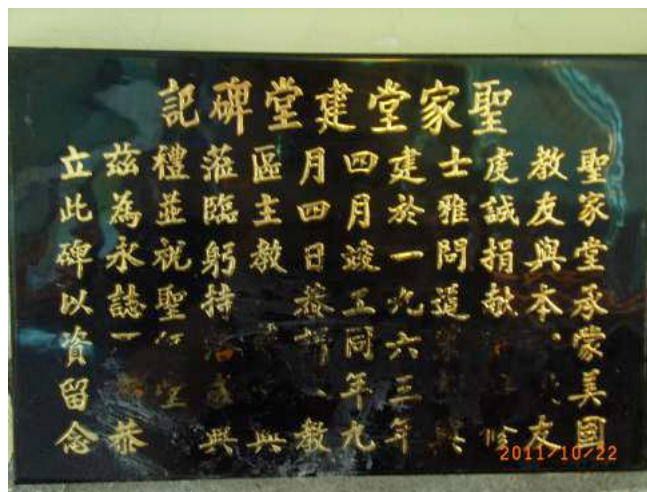 聖家堂建堂碑記
聖家堂承蒙美國
教友與本友
虔誠捐獻修
士雅問道興
建於一九六三年
四月竣工同年九
月四日恭請教
區主教
蒞臨躬持
禮並祝聖堂
茲為永誌恭
立此碑以資留念
2011/10/22